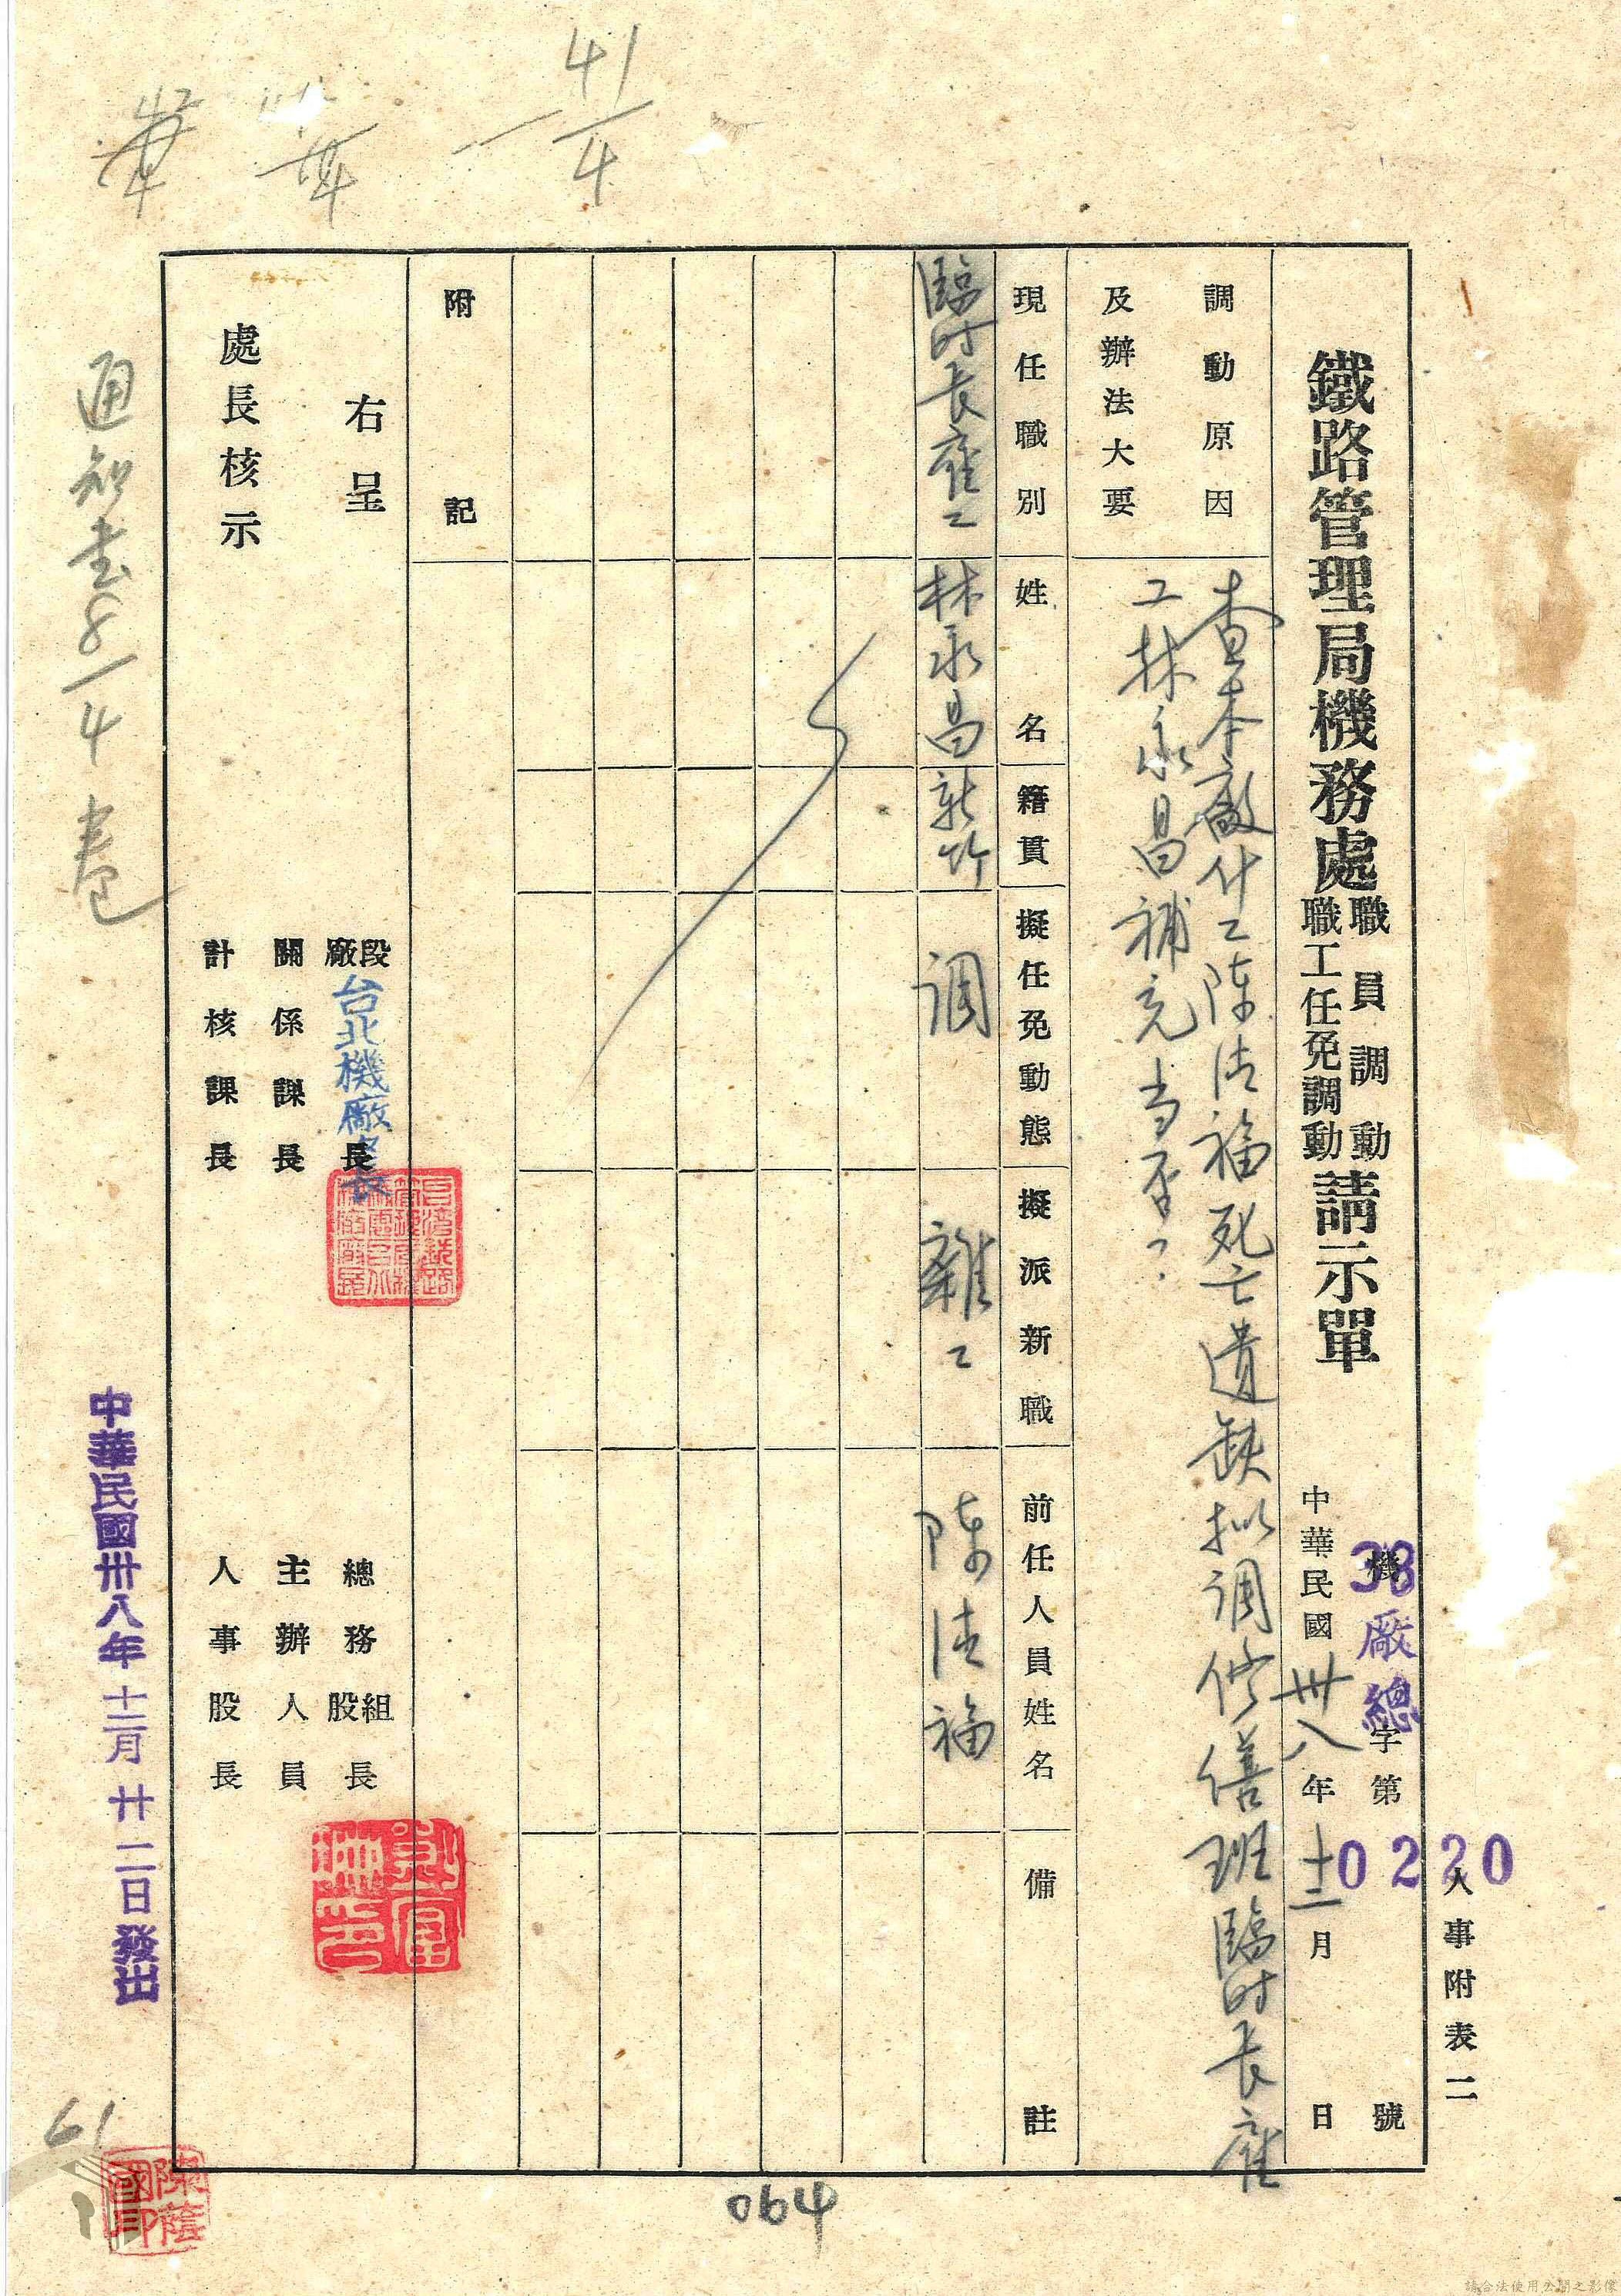 人事附表二
機38廠總字第0220號
鐵路管理局機務處職員調動職工任免調動請示單
中華民國卅八年十二月 日
調動原因及辦法大要
查本廠什工陳清福死亡遺缺拟调修繕班臨时長雇
工林永昌補充当否？
現任職別 姓名 籍貫 擬任免動態 擬派新職 前任人員姓名 備註
臨时長雇工 林永昌 新竹 调 雜工 陳清福
附記
右呈
處長核示
段廠長 台北機廠長
關係課長
計核課長
總務組股長
主辦人員
人事股長
中華民國卅八年十二月廿二日發出
通知書8/4卷
41/4
064
61
陳蔭國印
請合法使用公開之影像